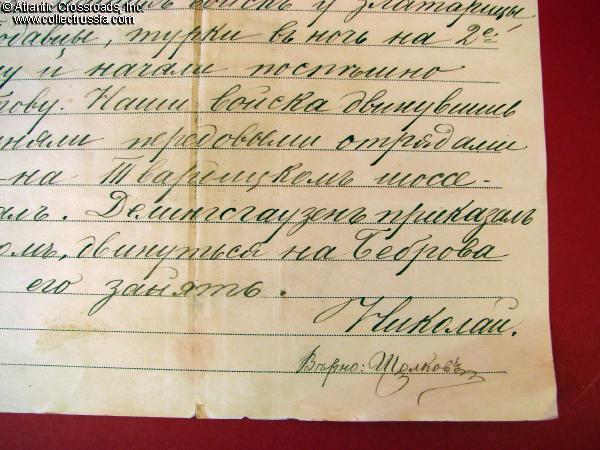 © Atlantic Crossroads, Inc.
www.collectrussia.com
войскъ у Златарицы
, турки въ ночь на 2е
и начали поспѣшно
. Наши войска двинувшись
передовыми отрядами
на Тварицкомъ шоссе-
. Делингсгаузенъ приказалъ
, двинуться на Беброва
его занять.
Николай.
Вѣрно: Шолковъ